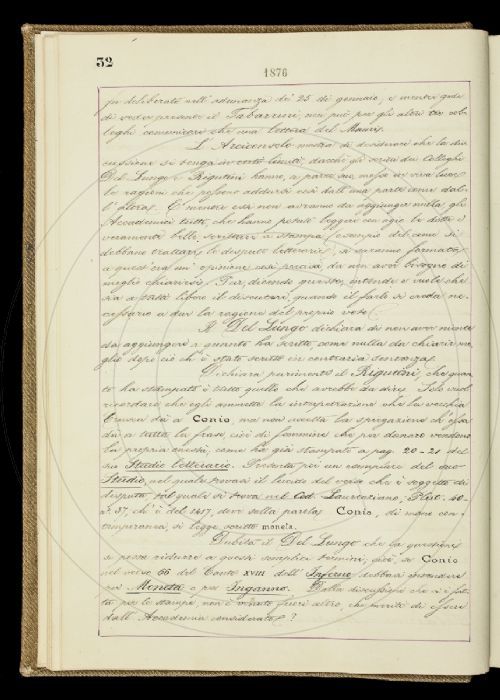 32
1876
fu deliberato nell'adunanza de' 25 di gennaio; e mentre gode
di veder presente il Tabarrini, non può per gli altri tre col-
leghi comunicare che una lettera del Mamis.
L'Arciconsolo mostra di desiderare che la di-
scussione si tenga in certi limiti, dacchè gli scritti dei Colleghi
Del Lungo e Rigutini hanno, a parer suo, messo in viva luce
le ragioni che possono addursi così dall'una parte come dal-
l'altra. E mentre essi non avranno da aggiunger nulla, gli
Accademici tutti, che hanno potuto leggere con agio le dotte e
veramente belle scritture a stampa, esempio del come si
debbano trattare le dispute letterarie, si saranno formata
a quest'ora un'opinione così precisa, da non aver bisogno di
meglio chiarirsi. Pur, dicendo questo, intende e vuole che
sia a tutti libero il discutere, quando il farlo si creda ne-
cessario a dar la ragione del proprio voto.
Il Del Lungo dichiara di non aver niente
da aggiungere a quanto ha scritto, come nulla da chiarir me-
glio dopo ciò ch'è stato scritto in contraria sentenza.
Dichiara parimente il Rigutini, che quan-
to ha stampato è tutto quello che avrebbe da dire. Solo vuol
ricordare che egli ammette la interpretazione che la vecchia
Crusca dà a Conio, ma non accetta la spiegazione ch'essa
dà a tutta la frase, cioè di femmine che per denaro vendono
la propria onestà, come ha già stampato a pag. 20-21 del
suo Studio letterario. Presenta poi un esemplare del suo
Studio, nel quale trovasi il lucido del verso che è soggetto di
disputa, tal quale si trova nel Cod. Laurenziano, Plut. 40-
n.° 37, ch'è del 1417, dove sulla parola Conio, di mano con-
temporanea si legge scritto moneta.
Dubita il Del Lungo che la questione
si possa ridurre a questi semplici termini, cioè, se Conio
nel verso 66 del Canto XVIII dell'Inferno debbasi intendere
per Moneta o per Inganno. Dalla discussione che si è fat-
ta per le stampe, non è venuto fuori altro, che meriti di esser
dall'Accademia considerato?